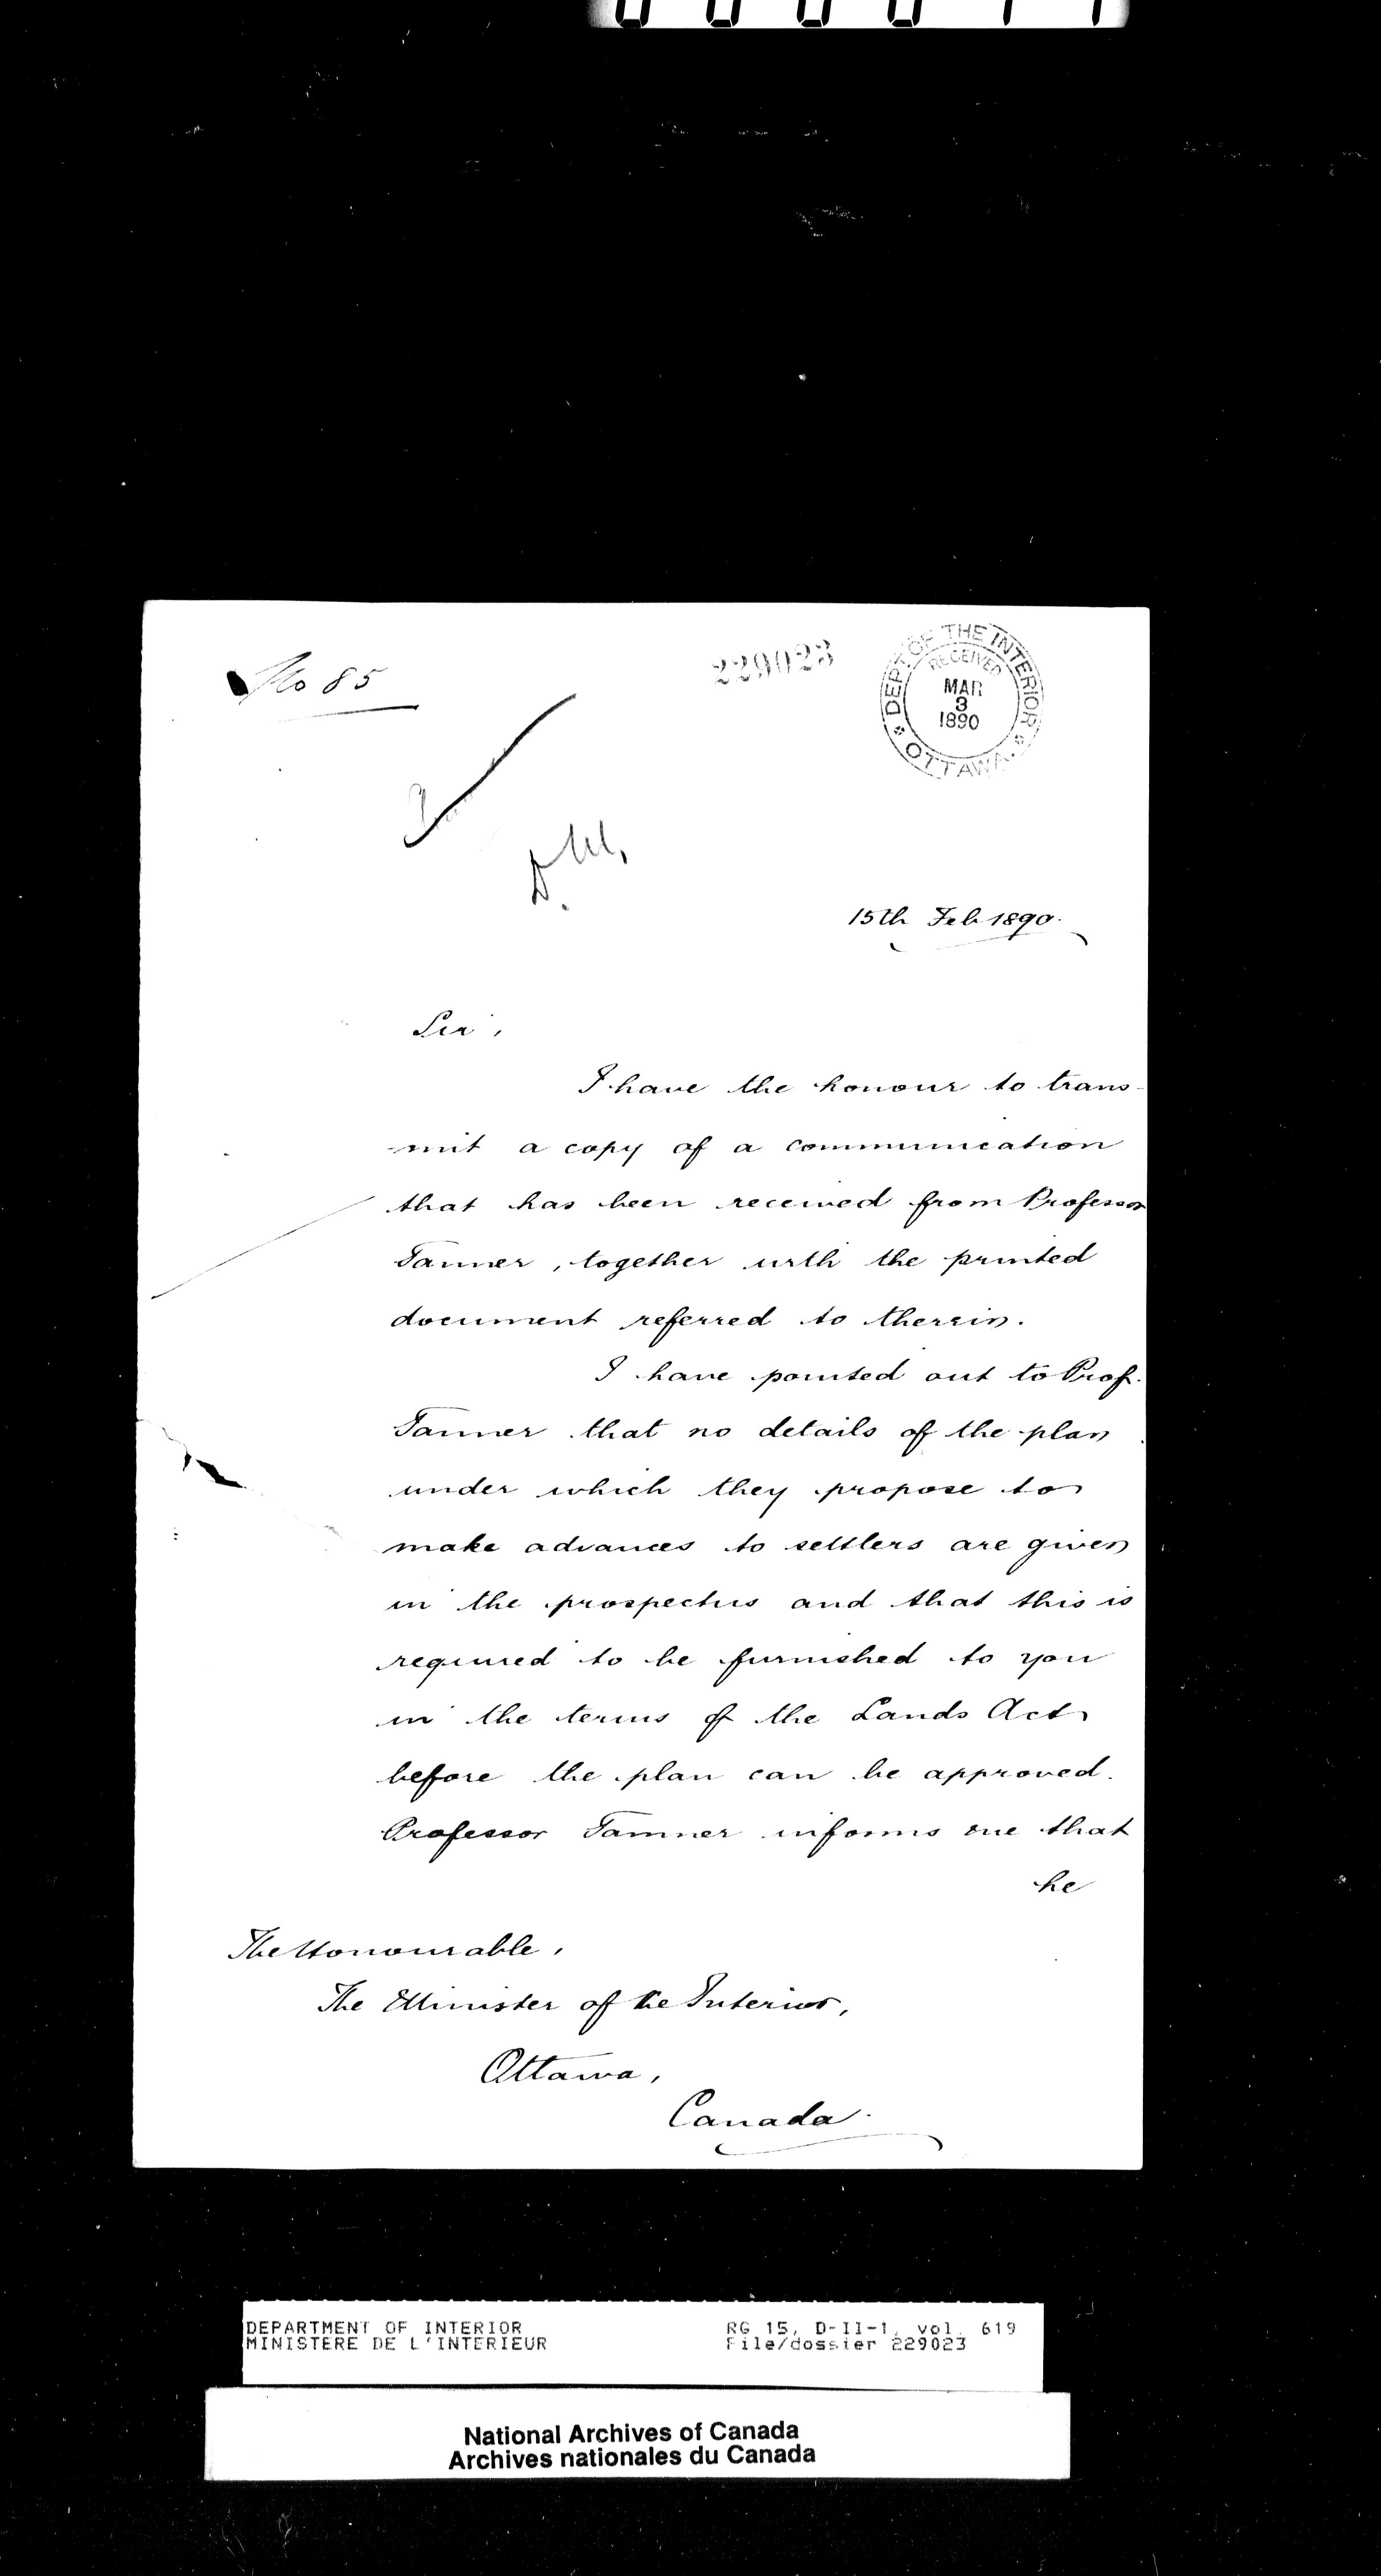 No 85
229023
DEPT. OF THE INTERIOR
RECEIVED
MAR
3
1890
OTTAWA.
15th Feb 1890.
Sir,
I have the honour to trans-
mit a copy of a communication
that has been received from Professor
Tanner, together with the printed
document referred to therein.
I have pointed out to Prof.
Tanner that no details of the plan
under which they propose to
make advances to settlers are given
in the prospectus and that this is
required to be furnished to you
in the terms of the Lands Act
before the plan can be approved.
Professor Tanner informs me that
he
The Honourable,
The Minister of the Interior,
Ottawa,
Canada.
DEPARTMENT OF INTERIOR
MINISTERE DE L'INTERIEUR
RG 15, D-II-1, vol. 619
File/dossier 229023
National Archives of Canada
Archives nationales du Canada